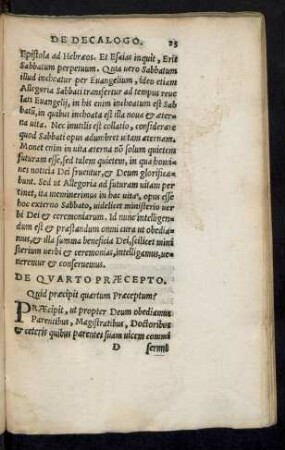 DE DECALOGO. 25
Epistola ad Hebræos. Et Esaias inquit, Erit
Sabbatum perpetuum. Quia uero Sabbatum
illud inchoatur per Euangelium, ideo etiam
Allegoria Sabbati transfertur ad tempus reue
lati Euangelij, in his enim inchoatum est Sab
batũ, in quibus inchoata est illa noua & æter
na uita. Nec inutilis est collatio, considerare
quod Sabbati opus adumbret uitam æternam.
Monet enim in uita æterna nõ solum quietem
futuram esse, sed talem quietem, in qua homi
nes noticia Dei fruentur, & Deum glorifica
bunt. Sed ut Allegoria ad futuram uitam per
tinet, ita meminerimus in hac uita, opus esse
hoc externo Sabbato, uidelicet ministerio uer
bi Dei & ceremoniarum. Id nunc intelligen
dum est & præstandum omni cura ut obedia
mus, & illa summa beneficia Dei, scilicet mini
sterium uerbi & ceremonias, intelligamus, ue
neremur & conseruemus.
DE QVARTO PRÆCEPTO.
Quid præcipit quartum Præceptum?
PRÆcipit, ut propter Deum obediamus
Parentibus, Magistratibus, Doctoribus
& cæteris quibus parentes suam uicem commi
D sermẽ